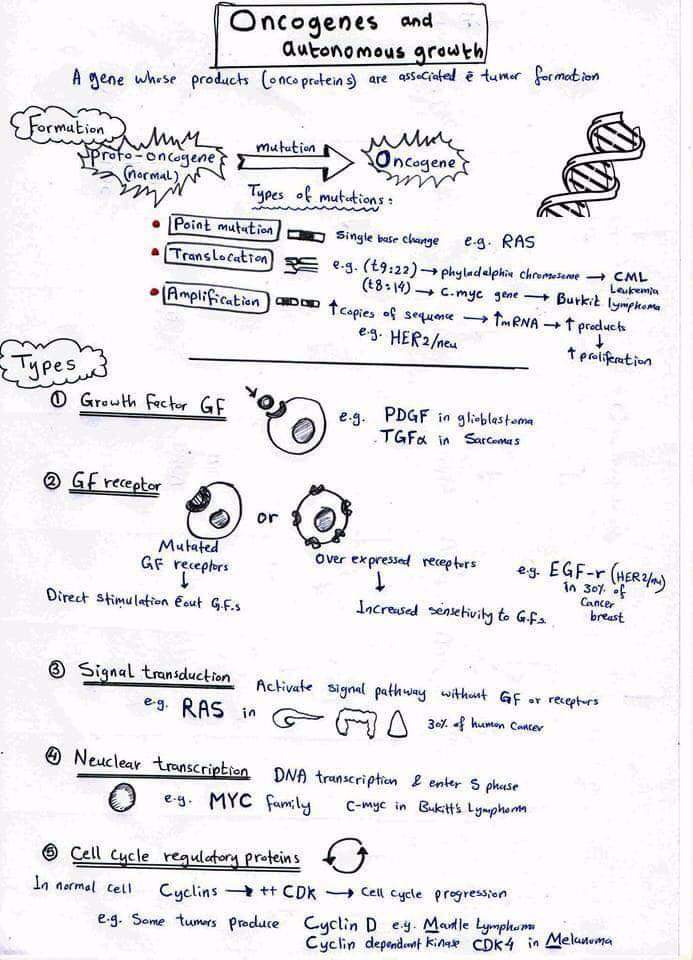 Oncogenes and
autonomous growth
A gene whose products (oncoproteins) are associated c̄ tumor formation
Formation
Proto-oncogene
(normal)
mutation
Oncogene
Types of mutations:
• Point mutation single base change e.g. RAS
• Translocation e.g. (t9:22) → phyladalphia chromosome → CML
Leukemia
(t8:14) → C-myc gene → Burkit lymphoma
• Amplification ↑copies of sequence → ↑mRNA → ↑ products
↓
e.g. HER2/neu
↑ proliferation
Types
① Growth factor GF
e.g. PDGF in glioblastoma
TGFα in Sarcomas
② GF receptor
or
Mutated
GF receptors
↓
Direct stimulation c̄out G.F.s
Over expressed receptors
↓
Increased sensetivity to G.F.s
e.g. EGF-r (HER2/nu)
in 30% of
Cancer
breast
③ Signal transduction Activate signal pathway without GF or receptors
e.g. RAS in 30% of human Cancer
④ Neuclear transcription DNA transcription & enter S phase
e.g. MYC family C-myc in Bukitt's Lymphoma
⑤ Cell cycle regulatory proteins
In normal cell Cyclins → ++ CDK → Cell cycle progression
e.g. Some tumors produce Cyclin D e.g. Mantle Lymphoma
Cyclin dependant kinase CDK4 in Melanoma